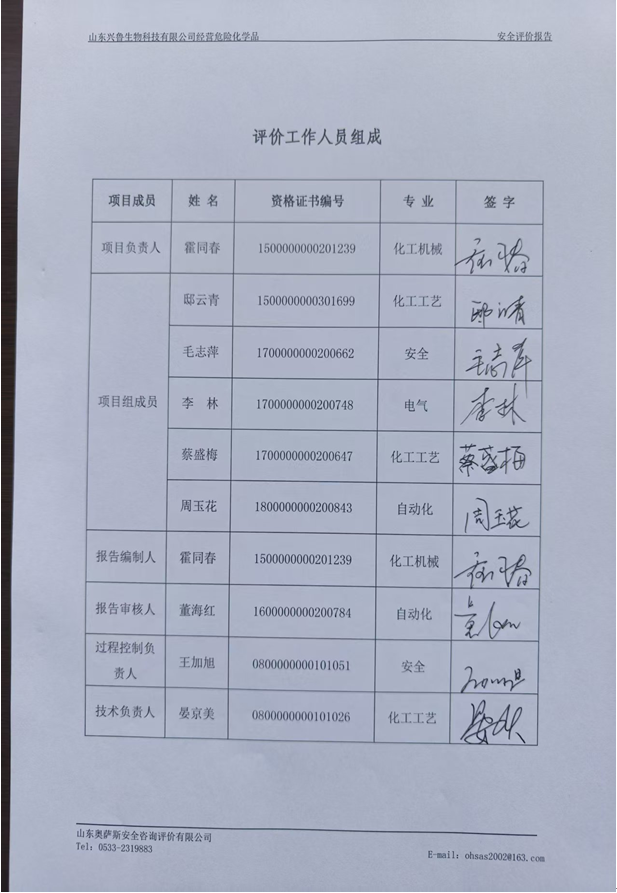 山东兴鲁生物科技有限公司经营危险化学品 安全评价报告
评价工作人员组成
项目成员 姓名 资格证书编号 专业 签字
项目负责人 霍同春 1500000000201239 化工机械
项目组成员
邸云青 1500000000301699 化工工艺 邸云青
毛志萍 1700000000200662 安全 毛志萍
李林 1700000000200748 电气 李林
蔡盛梅 1700000000200647 化工工艺 蔡盛梅
周玉花 1800000000200843 自动化 周玉花
报告编制人 霍同春 1500000000201239 化工机械
报告审核人 董海红 1600000000200784 自动化
过程控制负
责人 王加旭 0800000000101051 安全
技术负责人 晏京美 0800000000101026 化工工艺
山东奥萨斯安全咨询评价有限公司
Tel: 0533-2319883
E-mail: ohsas2002@163.com